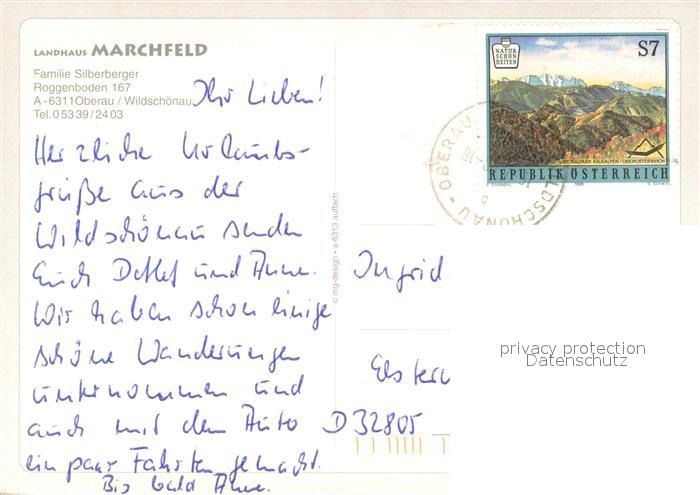 LANDHAUS MARCHFELD
Familie Silberberger
Roggenboden 167
A - 6311 Oberau / Wildschönau
Tel. 0 53 39 / 24 03
Ihr Lieben!
Herzliche Urlaubs-
grüße aus der
Wildschönau senden
Euch Detlef und Anne.
Wir haben schon einige
schöne Wanderungen
unternommen und
auch mit dem Auto
ein paar Fahrten gemacht.
Bis bald Anne.
© mg-design • a-6313 auffach
NATUR
SCHÖN
HEITEN
S7
NATIONALPARK KALKALPEN / OBERÖSTERREICH
REPUBLIK ÖSTERREICH
1998
OBERAU
WILDSCHÖNAU
Ingrid
Elster
D 32805
privacy protection
Datenschutz